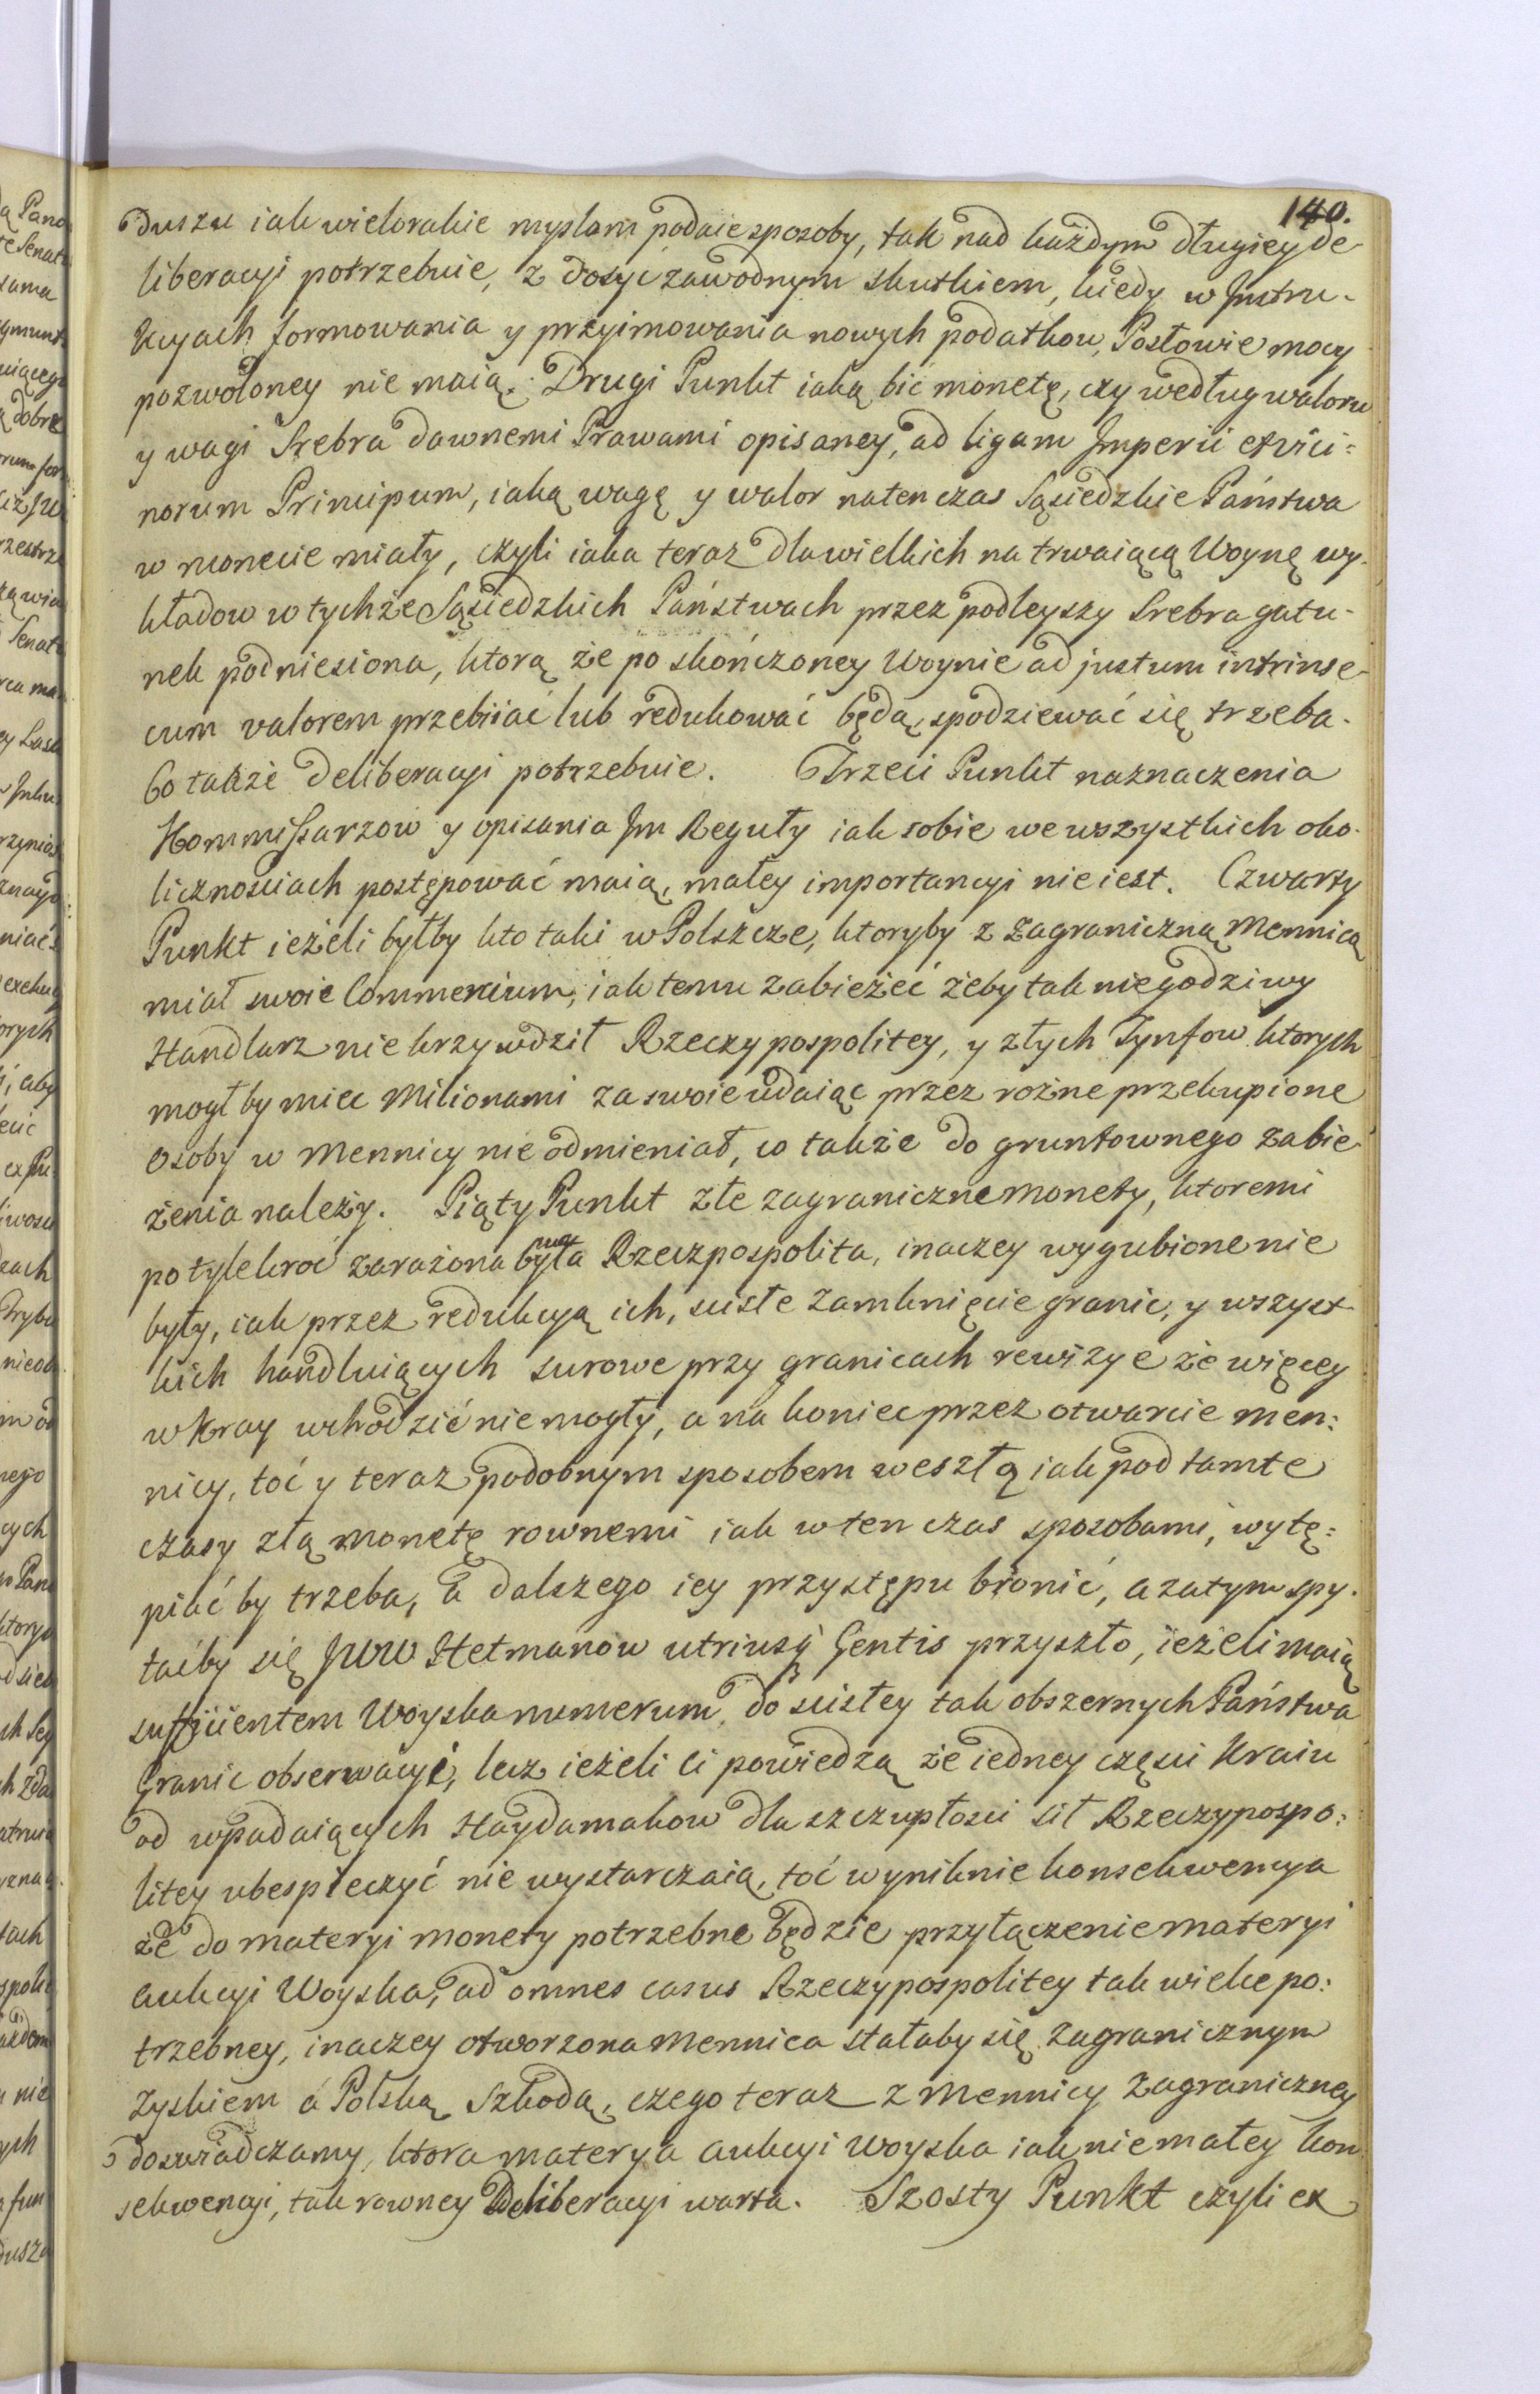 140.
Duszu iak wielorakie myslam podaie sposoby, tak nad każdym długiey de-
liberacyi potrzebuie, z dosyć zawodnym skutkiem, kiedy w Jnstru-
kcyach formowania y przyimowania nowych podatkow, Posłowie mocy
pozwoloney nie maią. Drugi Punkt iaką bić monetę, czy według waloru
y wagi Srebra dawnemi Prawami opisaney, ad ligam Jmperii et vici=
norum Principum, iaką wagę y walor natenczas Sąsiedzkie Państwa
w monecie miały, czyli iaka teraz dla wielkich na trwaiącą Woynę wy-
kładow w tychże Sąsiedzkich Państwach przez podleyszy Srebra gatu-
nek podniesiona, ktorą że po skończoney Woynie ad justum intrinse-
cum valorem przebiiać lub redukować będą, spodziewać się trzeba.
Co także deliberacyi potrzebuie. Trzeci Punkt naznaczenia
Kommissarzow y opisania Jm Reguły iak sobie we wszystkich oko-
licznosciach postępować maią, małey importancyi nie iest. Czwarty
Punkt ieżeli byłby kto taki w Polszcze, ktoryby z zagraniczną Mennicą
miał swoie Commercium, iak temu zabieżeć żeby tak niegodziwy
Handlarz nie krzywdził Rzeczypospolitey, y złych Tynfow ktorych
mogł by miec Milionami za swoie udaiąc przez rożne przekupione
Osoby w Mennicy nie odmieniał, co także do gruntownego zabie-
żenia należy. Piąty Punkt złe zagraniczne Monety, ktoremi
po tylekroć zarażona była Rzeczpospolita, inaczey wygubione nie
były, iak przez redukcyą ich, scisłe zamknięcie granic, y wszyst-
kich handluiących surowe przy granicach rewizye że więcey
w kray wchodzić nie mogły, a na koniec przez otwarcie men=
nicy, toć y teraz podobnym sposobem weszłą iak pod tamte
czasy złą Monetę rownemi iak w ten czas sposobami, wytę=
piać by trzeba, a dalszego iey przystępu bronić, a zatym spy-
taćby się JWW Hetmanow utriusq Gentis przyszło, ieżeli maią
sufficientem Woyska numerum, do scisłey tak obszernych Państwa
Granic obserwacyi, lecz ieżeli Ci powiedzą że iedney częsci Kraiu
od wpadaiących Haydamakow dla szczupłosci sił Rzeczypospo=
litey ubespieczyć nie wystarczaią, toć wyniknie konsekwencya
że do materyi monety potrzebne będzie przyłączenie materyi
aukcyi Woyska, ad omnes casus Rzeczypospolitey tak wielce po=
trzebney, inaczey otworzona Mennica stałaby się zagranicznym
zyskiem a Polską Szkodą, czego teraz z Mennicy zagraniczney
doswiadczamy, ktora materya aukcyi woyska iak nie małey kon
sekwencyi, tak rowney Deliberacyi warta. Szosty Punkt czyli ex